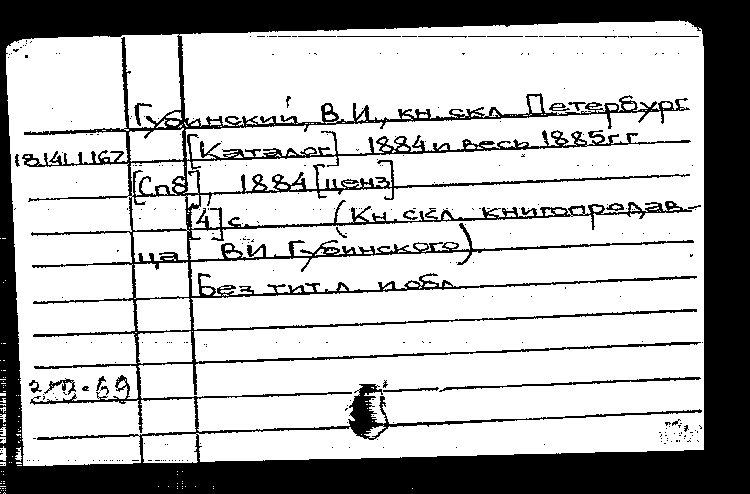 Губинский, В.И., кн. скл. Петербург
18.141.1.167 [Каталог] 1884 и весь 1885 г.г.
[Спб], 1884 [ценз]
[4] с. (Кн. скл. книгопродав-
ца В.И. Губинского)
Без тит. л. и обл.
69